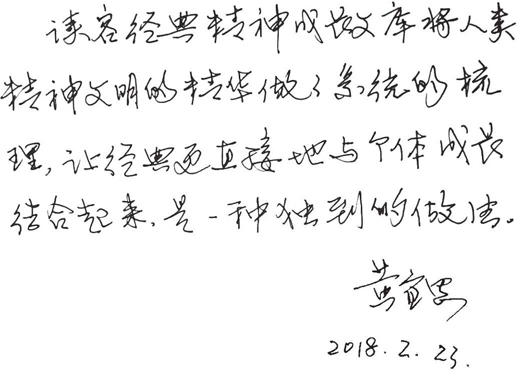 读客经典精神成长文库将人类
精神文明的精华做了系统的梳
理,让经典更直接地与个体成长
结合起来,是一种独到的做法。
黄宜思
2018.2.23.